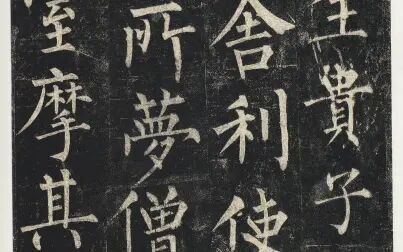 生貴子
舍利使
所夢僧
室摩其